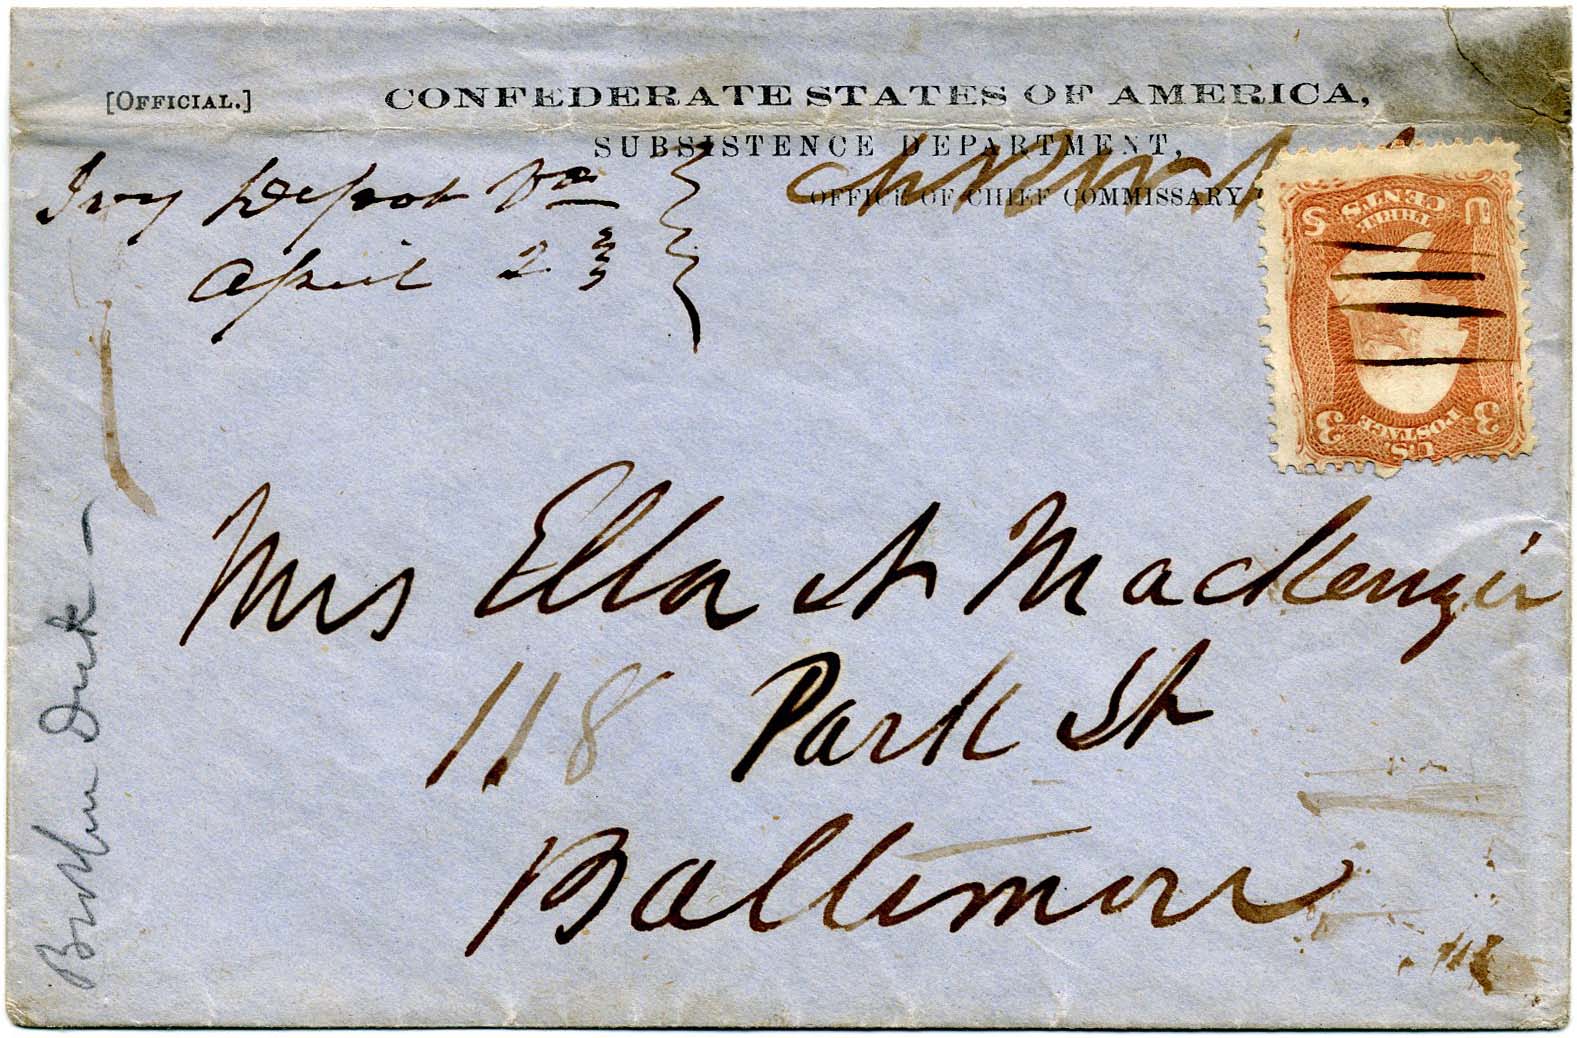 [OFFICIAL.]
CONFEDERATE STATES OF AMERICA,
SUBSISTENCE DEPARTMENT,
OFFICE OF CHIEF COMMISSARY
Ivy Depot Va
April 2
U S
THREE
CENTS
3 3
U S
POSTAGE
Mrs Ella N Mackenzie
118 Park St
Baltimore
Brother Dick -
118